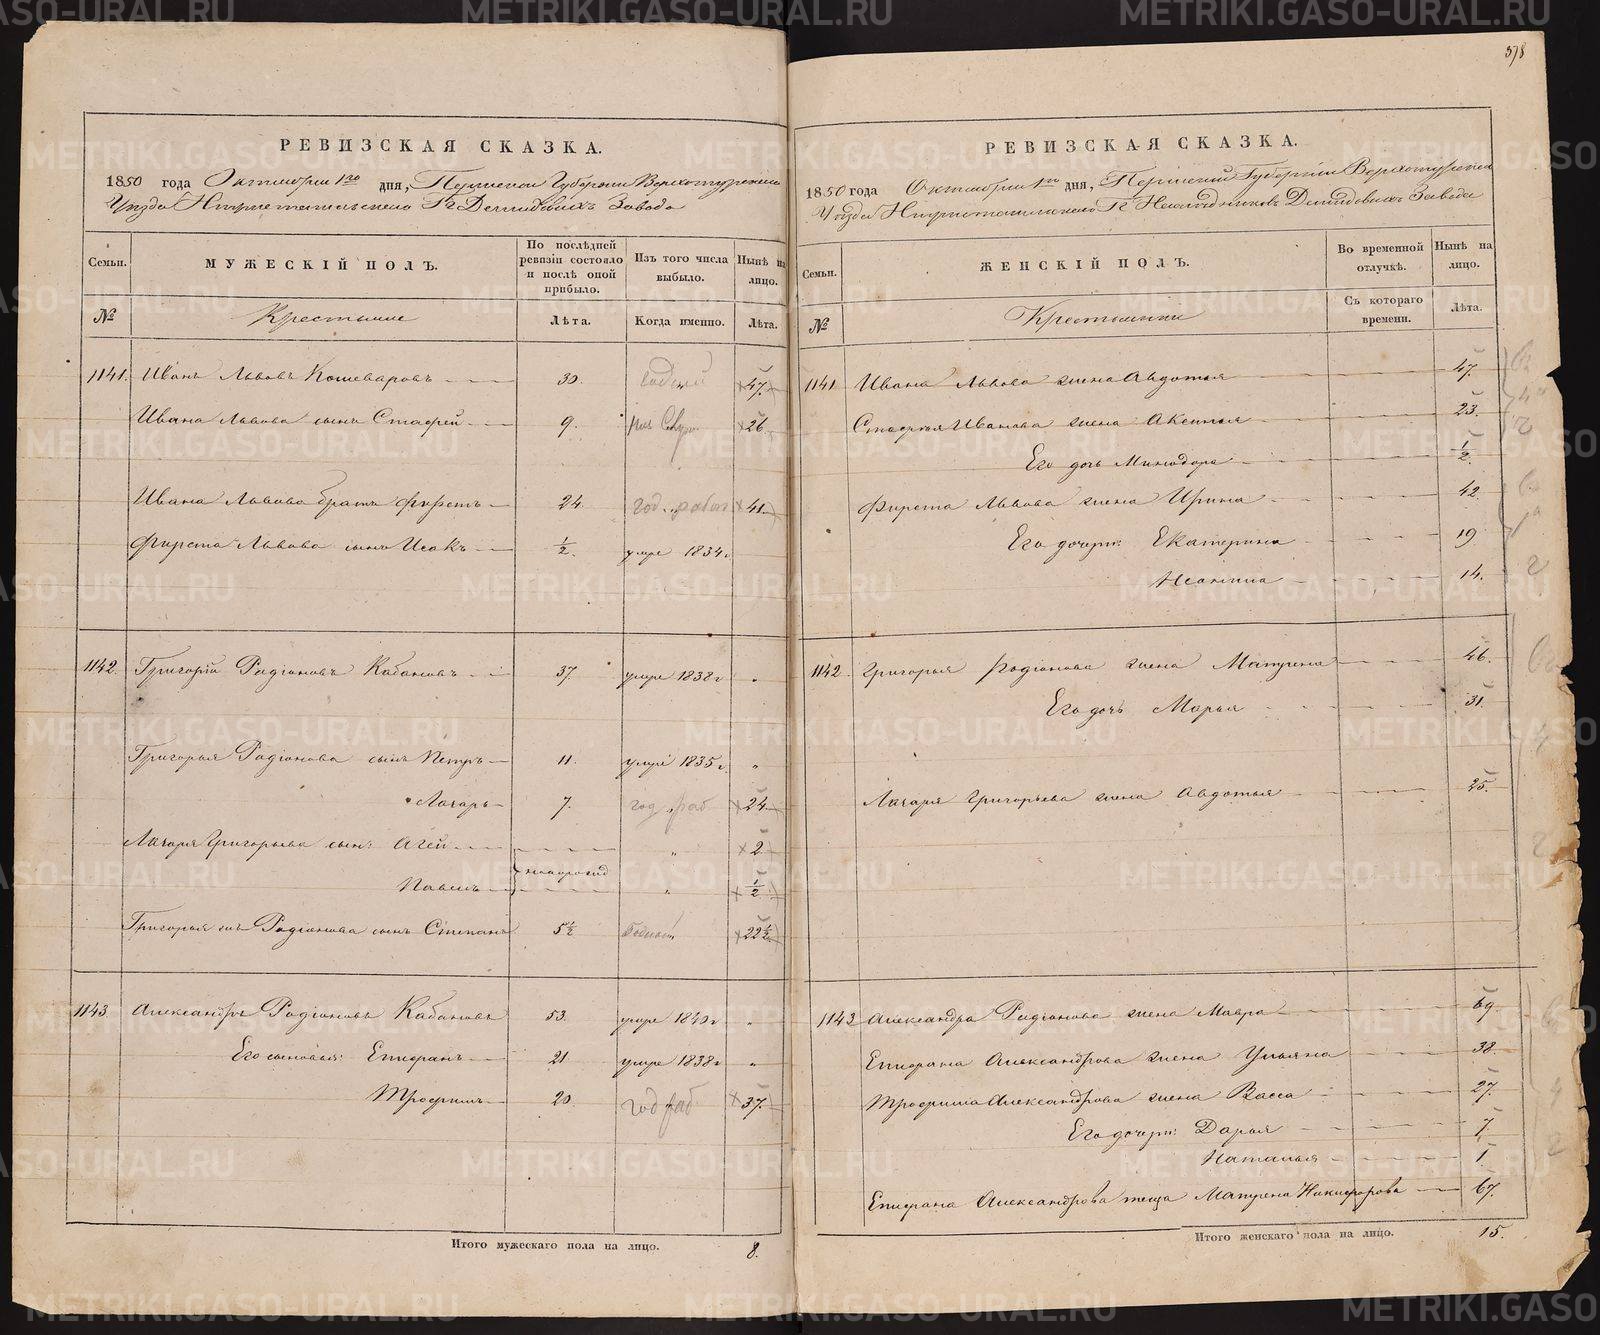 378
РЕВИЗСКАЯ СКАЗКА.
1850 года Октября 1го дня, Пермской Губернии Верхотурскаго
Уѣзда Нижнетагильскаго Гг. Демидовыхъ Завода
Семьи. МУЖЕСКІЙ ПОЛЪ. По послѣдней ревизіи состояло и послѣ оной прибыло. Изъ того числа выбыло. Нынѣ на лицо.
№ Крестьяне Лѣта. Когда именно. Лѣта.
1141. Иванъ Львовъ Кошеваровъ 30. 47.
Ивана Львова сынъ Стафей 9. 26.
Ивана Львова братъ Фирсъ 24. год. работ 41.
Фирста Львова сынъ Исакъ ½. умре 1834г
1142. Григорій Радіоновъ Кабановъ 37. умре 1838г "
Григорья Радіонова сынъ Петръ 11. умре 1835г. "
Лазарь 7. год. раб 24.
Лазаря Григорьева сынъ Агей " 2
Павелъ новорожд " ½
Григорья Радіонова сынъ Степанъ 5½ 22½
1143. Александръ Радіоновъ Кабановъ 53. умре 1840г "
Его сыновья: Епифанъ 21 умре 1838г "
Трофимъ 20. год раб 37.
Итого мужескаго пола на лицо. 8.
РЕВИЗСКАЯ СКАЗКА.
1850 года Октября 1го дня, Пермской Губерніи Верхотурскаго
Уѣзда Нижнетагильскаго Гг. Наслѣдниковъ Демидовыхъ Завода
Семьи. ЖЕНСКІЙ ПОЛЪ. Во временной отлучкѣ. Нынѣ на лицо.
№ Крестьянки Съ котораго времени. Лѣта.
1141 Ивана Львова жена Авдотья 47.
Стафея Иванова жена Аксинья 23.
Его дочь Минодора ½.
Фирста Львова жена Ирина 42.
Его дочери: Екатерина 19
14.
1142. Григорья Родіонова жена Матрена 46.
Его дочь Марья 31.
Лазаря Григорьева жена Авдотья 25.
1143 Александра Радіонова жена Мавра 69
Епифана Александрова жена Ульяна 38.
Трофима Александрова жена Васса 27.
Его дочери: Дарья 7.
Наталья 1
Епифана Александрова теща Матрена Никифорова 67.
Итого женскаго пола на лицо. 15.
METRIKI.GASO-URAL.RU